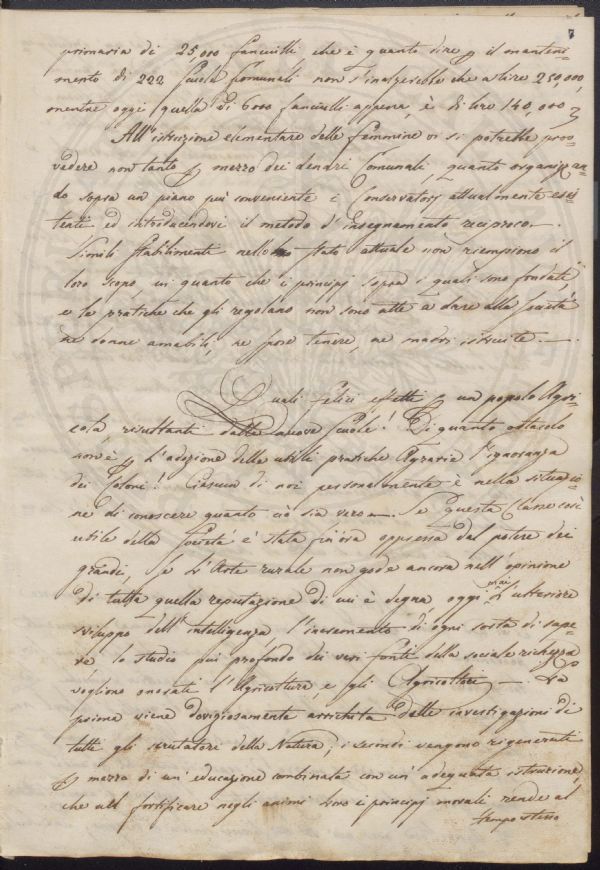 7
primaria di 25,000 fanciulli che è quanto dire il manteni-
mento di 222 Scuole Comunali non s'inalzerebbe che a lire 250,000,
mentre oggi quella di 6000 fanciulli appena, è di lire 140,000
All'istruzione elementare delle femmine vi si potrebbe prov-
vedere non tanto mezzo dei denari Comunali quanto organizzan-
do sopra un piano più conveniente i Conservatorj attualmente esis-
tenti ed introducendovi il metodo d'insegnamento reciproco.
Simili stabilimenti nello stato attuale non riempiono il
loro scopo, in quanto che i principj sopra i quali sono fondati,
e le pratiche che gli regolano non sono atte a dare alla Società
ne donne amabili, ne spose tenere, ne madri istruite.
Quali felici effetti un popolo Agri-
cola risultanti dalle nuove scuole! Di quanto ostacolo
non è L'adozione delle utili pratiche Agrarie l'ignoranza
dei Coloni! Ciascun di noi personalmente è nella situazio-
ne di conoscere quanto ciò sia vero. Se questa Classe così
utile della Società è stata finora oppressa dal potere dei
grandi, se L'Arte rurale non gode ancora nell'opinione
di tutta quella reputazione di cui è degna oggi mai l'ulteriore
sviluppo dell'intelligenza l'incremento di ogni sorta di sape-
re, lo studio più profondo dei veri fonti della sociale richezza
vogliono onorati l'Agricoltura, e gli Agricoltori. La
prima viene doviziosamente arrichita dalle investigazioni di
tutti gli scrutatori della Natura, i secondi vengono rigenerati
mezzo di un'educazione combinata con un'adeguata istruzione
che nel fortificare negli animi loro i principj morali rende al
tempo stesso